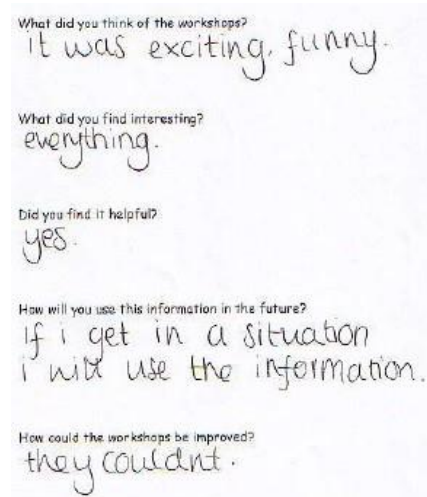 What did you think of the workshops?
it was exciting, funny.
What did you find interesting?
everything.
Did you find it helpful?
yes.
How will you use this information in the future?
If i get in a situation
i will use the information.
How could the workshops be improved?
they couldnt.